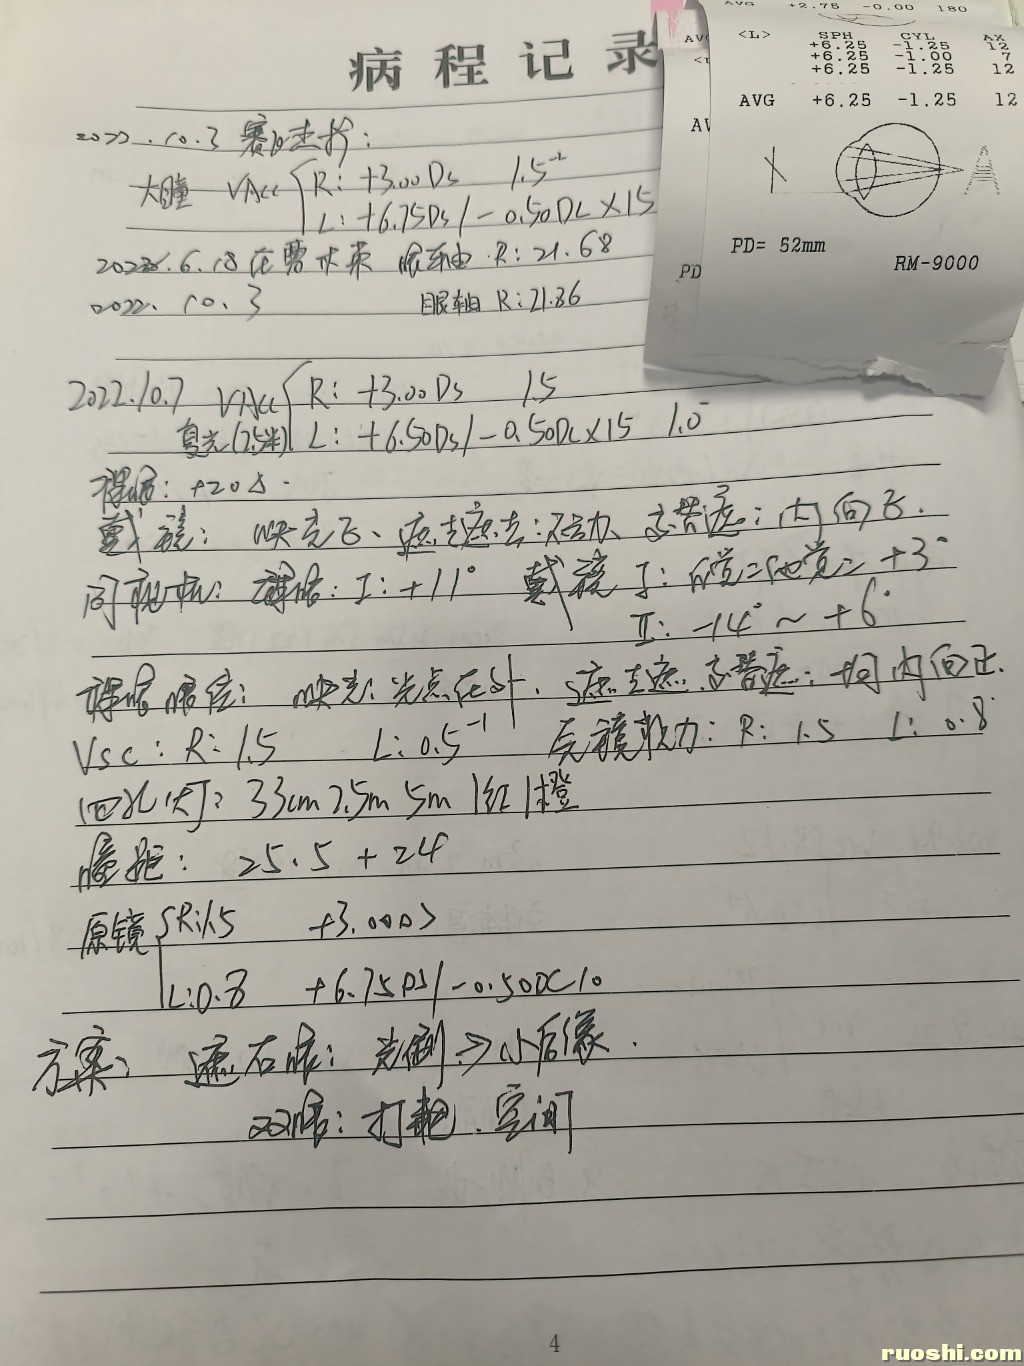 病程记录
2022.10.3
大瞳 VAcc R: +3.00Ds 1.5⁻²
L: +6.75Ds/-0.50DC×15
6.18 眼轴 R: 21.68
2022. 10. 3 眼轴 R: 21.86
2022.10.7 VAcc R: +3.00Ds 1.5
复光(2.5米) L: +6.50Ds/-0.50DC×15 1.0⁻
裸眼: +20△.
戴镜: 映光正、遮去遮: 不动 交替遮: 内向正.
同视机: 裸眼: I: +11° 戴镜 I: 自觉=他觉= +3°
II: -14° ~ +6°
裸眼眼位: 映光: 光点在外. 遮去遮. 交替遮: 均内向正.
Vsc: R: 1.5 L: 0.5⁻¹ 原镜视力: R: 1.5 L: 0.8
四孔灯: 33cm 2.5m 5m 1红1橙
瞳距: 25.5 + 24
原镜 R: 1.5 +3.00DS
L: 0.8 +6.75DS/-0.50DC 10
方案: 遮右眼: 光刷→小后像.
双眼: 打靶. 空间
4
AVG +2.75 -0.00 180
<L> SPH CYL AX
+6.25 -1.25 12
+6.25 -1.00 7
+6.25 -1.25 12
AVG +6.25 -1.25 12
PD= 52mm
RM-9000
AV
PD
ruoshi.com